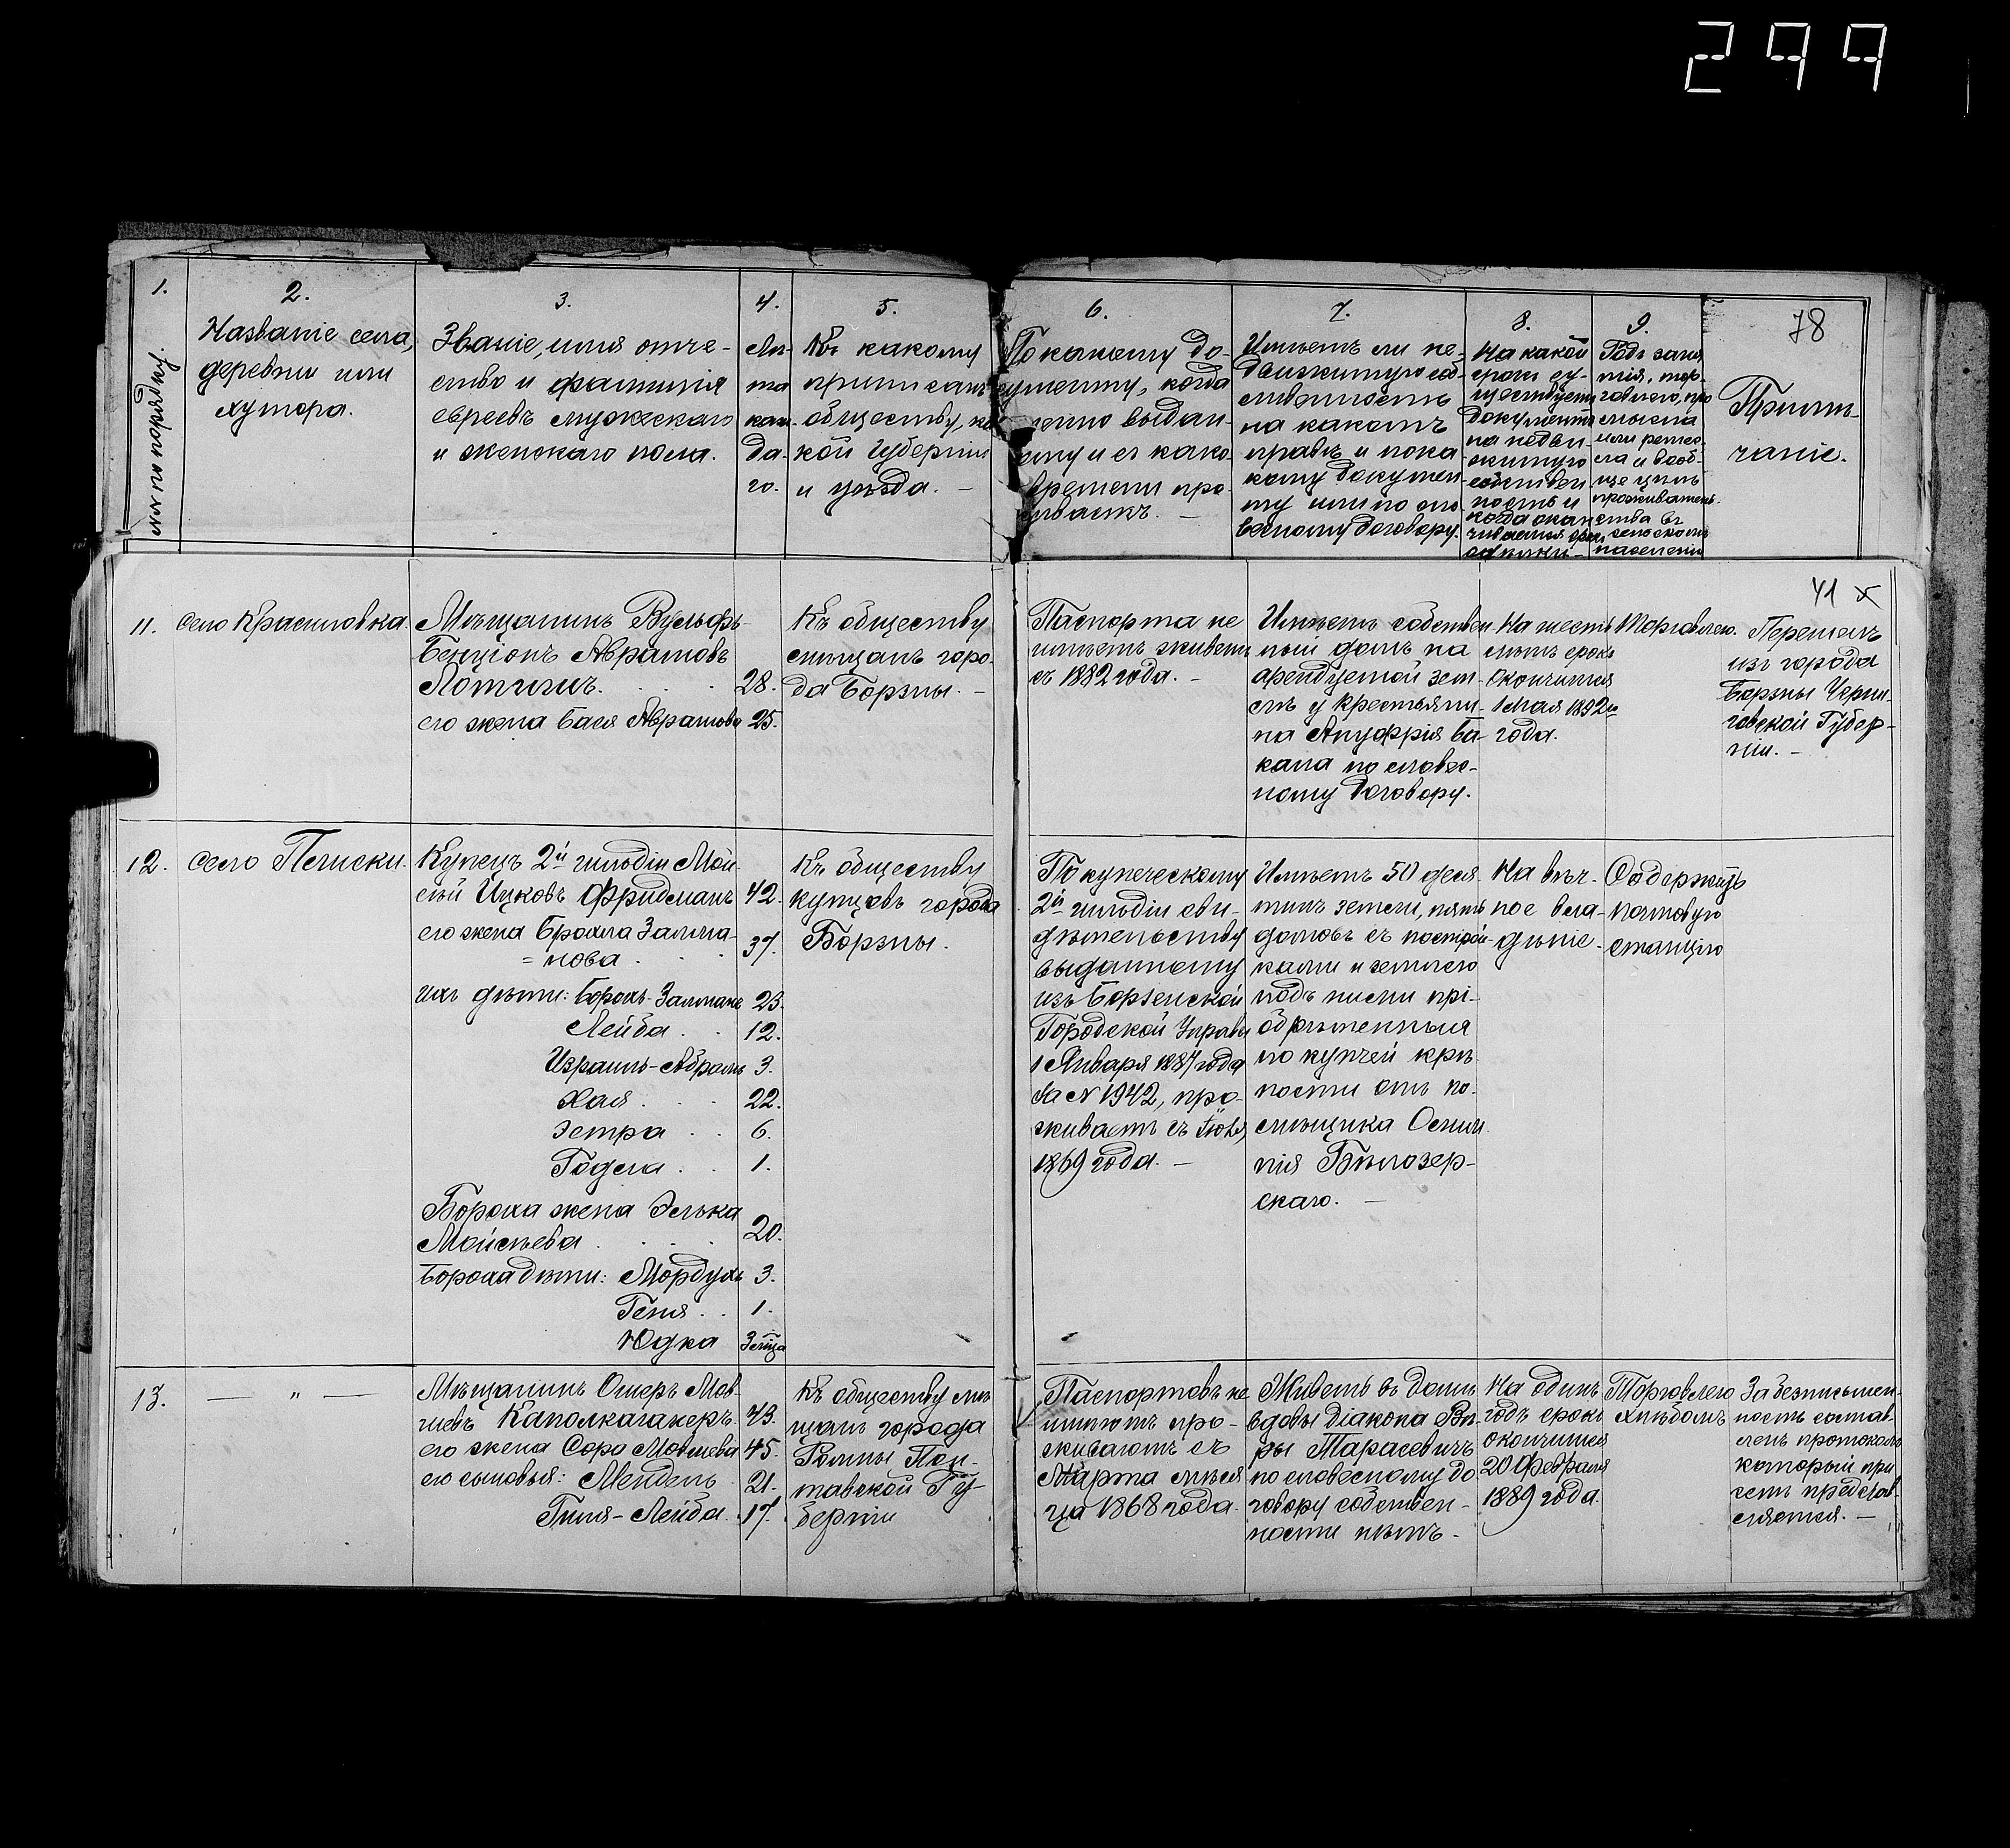 299
1.
№№ по порядку.
2.
Названіе села,
деревни или
хутора.
3.
Званіе, имя отче-
ство и фамилія
евреевъ мужскаго
и женскаго пола.
4.
Лѣ-
та
каж-
да-
го.
5.
Къ какому
приписанъ
обществу, ка
кой губерніи
и уѣзда. —
6.
По какому до-
кументу, когда
выдан-
ному и съ како
времени про-
живаетъ. —
7.
Имѣетъ ли не-
движимую соб-
ственность
на какомъ
правѣ и пока
кому докумен
ту или по сло
весному договору.
8.
На какой
срокъ су-
ществуетъ
документъ
на недви-
жимую
собствен
ность и
когда окан
чивается срокъ
9.
Родъ заня
тія, тор-
говлею, про
мысла
или ремес-
ла и вооб-
ще цѣль
проживатель-
ства въ
сельскомъ
населеніи
78
Примѣ-
чаніе.
41
11.
село Красиловка.
Мѣщанинъ Вульфъ-
Бенціонъ Аврамовъ
28.
его жена Бася Аврамова 25.
Къ обществу
мѣщанъ горо-
да Борзны. —
Паспорта не
имѣетъ живетъ
съ 1882 года. —
Имѣетъ собствен
ный домъ на
арендуемой зем-
лѣ у крестьяни-
на Ануфрія Ба-
кала по словес-
ному договору.
На шесть
лѣтъ срокъ
окончится
1 мая 1892 го
года.
Торговлею.
Перешелъ
изъ города
Борзны Черни-
говской Губер-
ніи. —
12.
село Печиски.
Купецъ 2й гильдіи Мой
сей Ицковъ Фридманъ 42.
его жена Броха Залма-
= нова . . . 37.
ихъ дѣти: Борохъ-Залманъ 23.
Лейба . . 12.
Израиль-Абрамъ 3.
Хая . . . 22.
Эстра . . 6.
Годела . . 1.
Бороха жена Элька
Мойсѣева . . . 20.
Бороха дѣти: Мордухъ 3.
Геня . . 1.
Юдка 3 мѣсца
Къ обществу
купцовъ города
Борзны.
По купеческому
2й гильдіи сви-
дѣтельству
выданному
изъ Борзенской
Городской Управы
1 Января 1887 года
за № 1942, про-
живаетъ съ Іюля
1869 года. —
Имѣетъ 50 деся-
тинъ земли, пять
домовъ съ построй-
ками и землею
подъ ними прі-
обрѣтенныя
по купчей крѣ
пости отъ по-
мѣщика Осмин
нія Бѣлозер-
скаго. —
На вѣч-
ное вла-
дѣніе.
Содержитъ
почтовую
станцію
13.
— " —
Мѣщанинъ Ошеръ Мов-
шевъ Каполкагакеръ 43.
его жена Сора Мовшева 45.
его сыновья: Мендель 21.
Гиля-Лейба. 17.
Къ обществу мѣ
щанъ города
Ромны Пол-
тавской Гу-
берніи
Паспортовъ не
имѣютъ про-
живаютъ съ
Марта мѣся
ца 1868 года.
Живетъ въ домѣ
вдовы діакона Вѣ-
ры Тарасевичъ
по словесному до
говору собствен-
ности нѣтъ.
На одинъ
годъ срокъ
окончится
20 февраля
1889 года.
Торговлею
хлѣбомъ
За безписьмен-
ность состав-
ленъ протоколъ
который при
семъ представ-
ляется. —